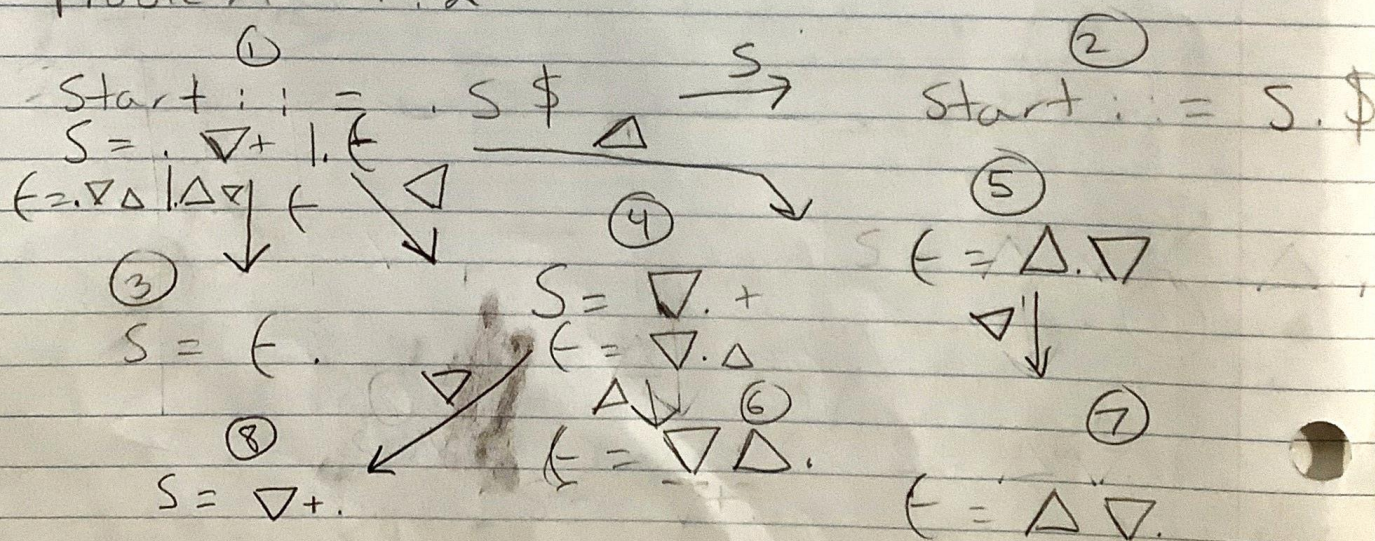 ①
Start ::= . S $
S
②
Start ::= S . $
S = . ▽+ | . E
△
E = . ▽△ | . △▽
E
◁
③
S = E .
④
S = ▽ . +
E = ▽ . △
⑤
E = △ . ▽
▽
▽
△
⑥
E = ▽△ .
⑦
E = △▽ .
⑧
S = ▽+ .